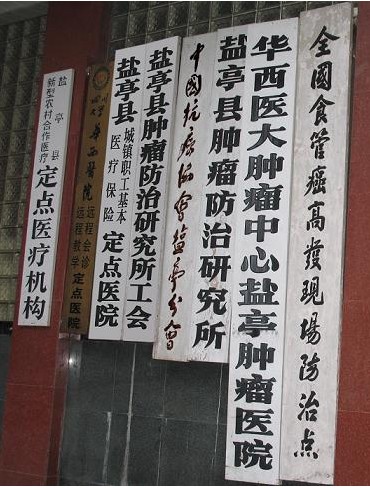 全國食管癌高發現場防治点
华西医大肿瘤中心盐亭肿瘤医院
盐亭县肿瘤防治研究所
中國抗癌协會盐亭分會
盐亭县肿瘤防治研究所工会
盐亭县
城镇职工基本
医疗保险
定点医院
華西醫院
远程会诊
远程教学
定点医院
盐亭县
新型农村合作医疗
定点医疗机构